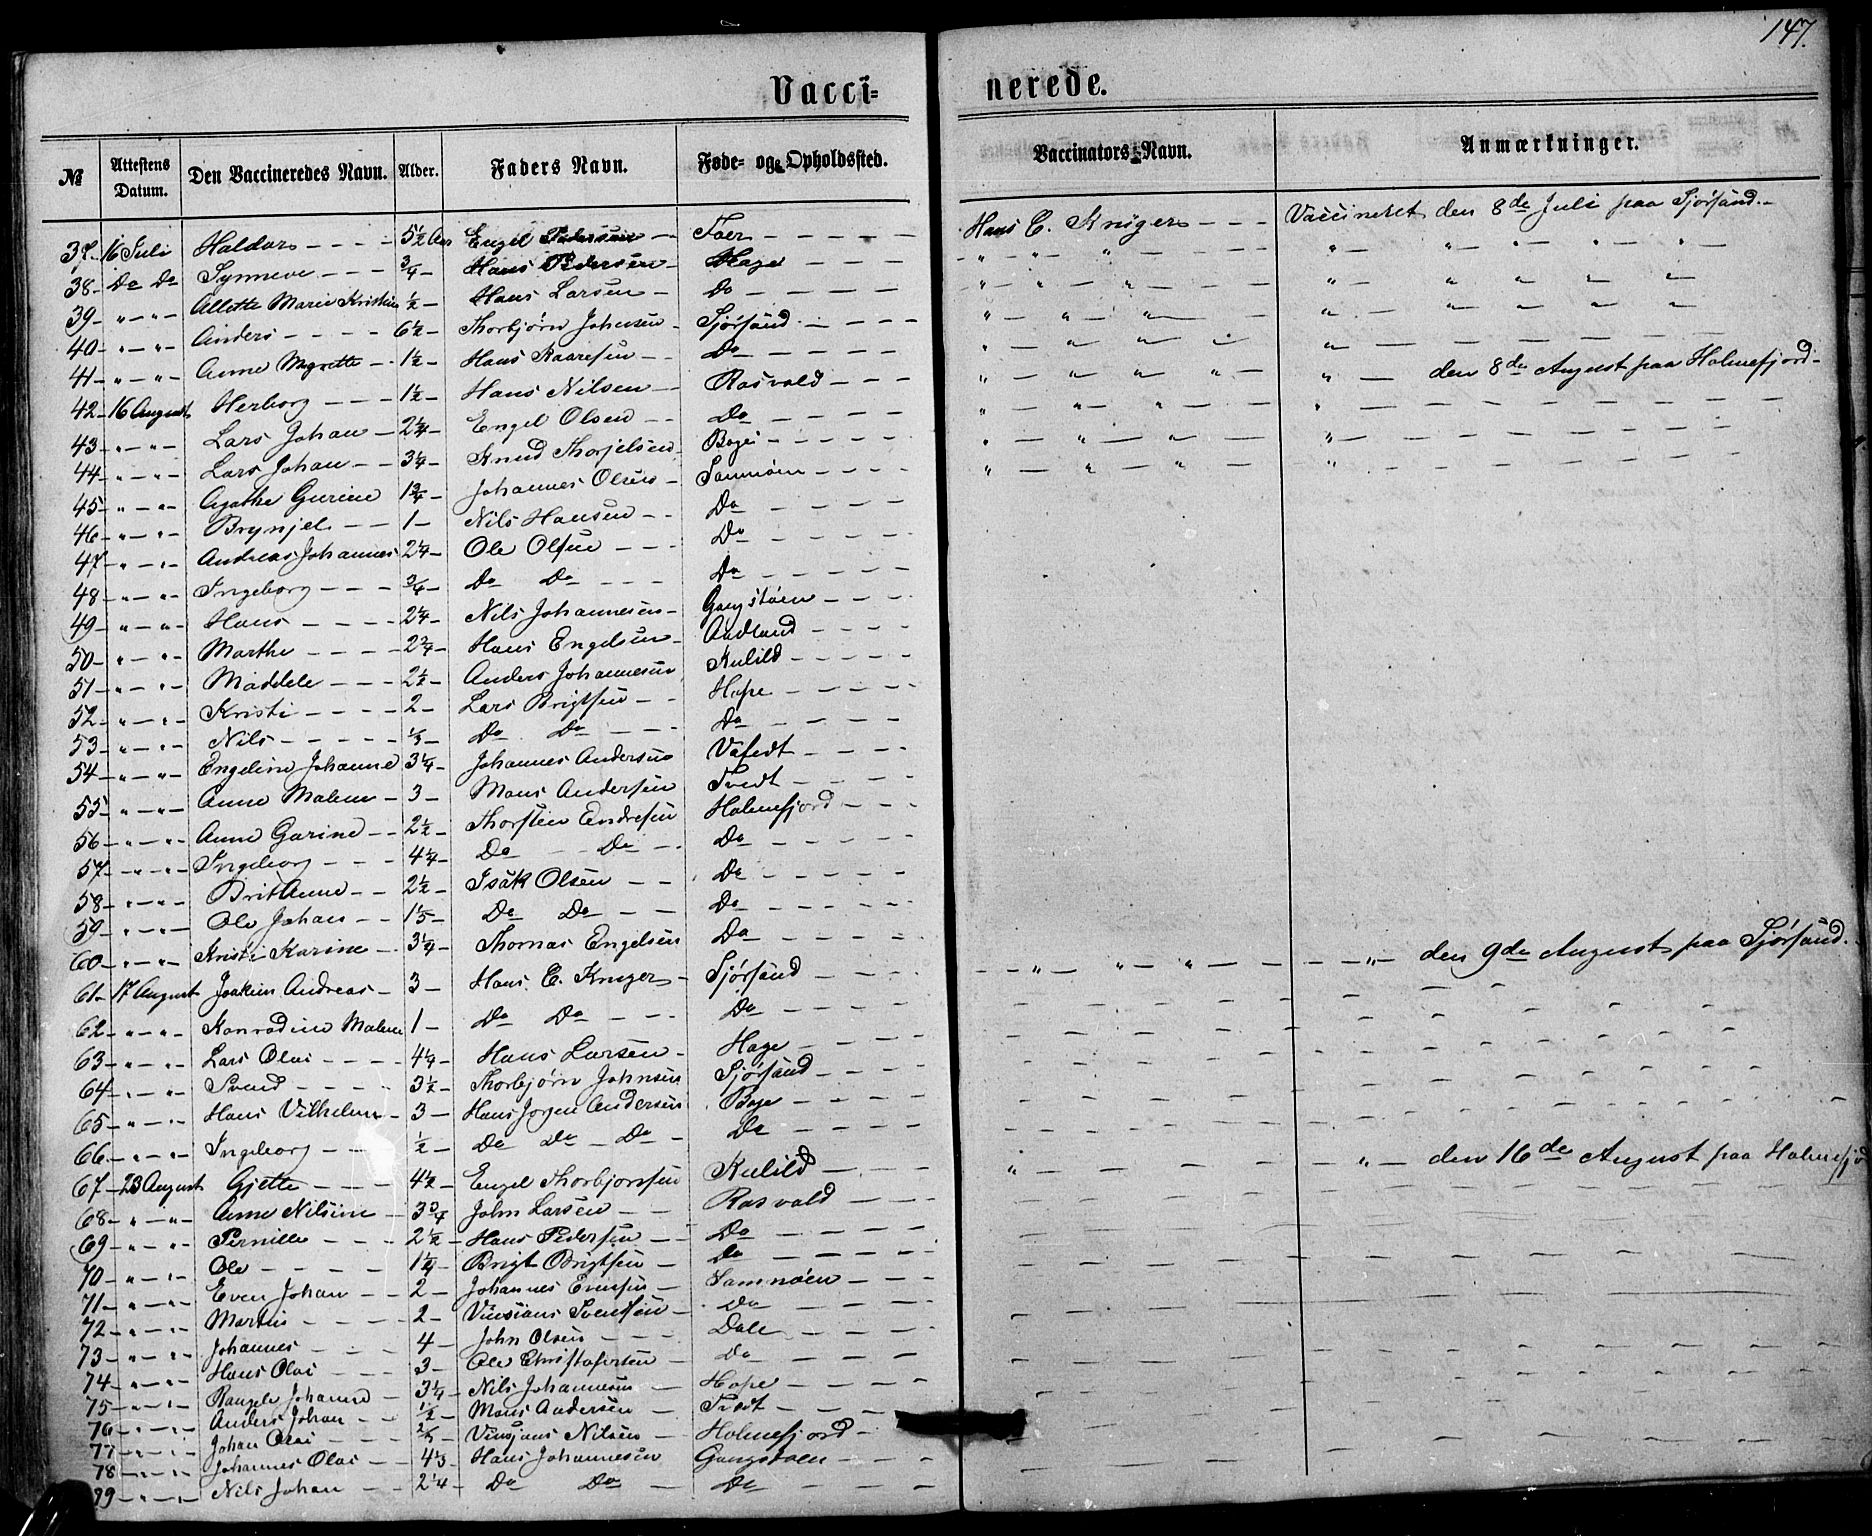 147.
Vacci= nerede.
№ Attestens Datum. Den Vaccineredes Navn. Alder. Faders Navn. Føde= og Opholdssted. Vaccinators=Navn. Anmærkninger.
37 16 Juli Haldor 5½ Aar Engel Pedersen Toer Hans C. Krüger Vaccineret den 8de Juli paa Sjørsand
38 Do Do Synneve ¾ Hans Pedersen Hage " " " " " " "
39 " " Allette Marie Kristine ½ Hans Larsen Do " " " " " " "
40 " " Anders 6½ Thorbjørn Johnsen Sjørsand " " " " " " "
41 " " Anne Magrette 1½ Hans Kaaresen Do " " " " "
42 16 August Herborg 1½ Hans Nilsen Rosvold " " " " " den 8de August paa Holmefjord
43 " " Lars Johan 2¼ Engel Olsen Do " " " "
44 " " Lars Johan 3¼ Knud Thorjelsen Boge " " " "
45 " " Agathe Gurine 1¾ Johannes Olsen Samnøen " " " "
46 " " Brynjel 1 Nils Hansen Do
47 " " Andreas Johannes 2¼ Ole Olsen Do
48 " " Ingeborg ¾ Do Do Do
49 " " Hans 2¼ Nils Johannesen Gangstøen
50 " " Marthe 2¾ Hans Engelsen Aadland
51 " " Maddele 2½ Anders Johannesen Kulild
52 " " Kristi 2 Lars Brigtsen Hope
53 " " Nils ⅓ Do Do Do
54 " " Engeline Johanne 3¼ Johannes Andersen
55 " " Anne Malene 3 Mons Andersen Tvedt
56 " " Anne Gurine 2½ Thorstein Endresen Holmefjord
57 " " Ingeborg 4¼ Do Do Do
58 " " Brit Anne 2½ Isak Olsen Do
59 " " Ole Johan Do Do Do
60 " " Kristi Karine 3¼ Thomas Engelsen Do
61 17 August Joakim Andreas 3 Hans C. Krüger Sjørsand " " " " den 9de August paa Sjørsand.
62 " " Konradine Malene 1 Do Do Do
63 " " Lars Olai 4¼ Hans Larsen Hage
64 " " Svend 3½ Thorbjørn Johnsen Sjørsand
65 " " Hans Vilhelm 3 Hans Jørgen Andersen Boge
66 " " Ingeborg ½ Do Do Do Do
67 23 August Gjette 4½ Engel Thorbjørnsen Kulild " " den 16de August paa Holmefjord
68 " " Anne Nilsine 3¾ John Larsen Rosvold
69 " " Pernille 2½ Hans Pedersen Do
70 " " Ole 1¼ Brigt Brigtsen Do
71 " " Even Johan 2 Johannes Evensen Samnøen
72 " " Martin 2 Vinsians Svendsen Do
73 " " Johannes 4 John Olsen Dale
74 " " Hans Olai 3 Ole Christofersen Do
75 " " Rangele Johanne 3¼ Nils Johannesen Hope
76 " " Anders Johan ½ Mons Andersen Tvedt
77 " " Johan Olai Vinsjans Nilsen Holmefjord
78 " " Johannes Olai 4⅓ Hans Johannesen Gangstøen
79 " " Nils Johan 2¼ Do Do Do